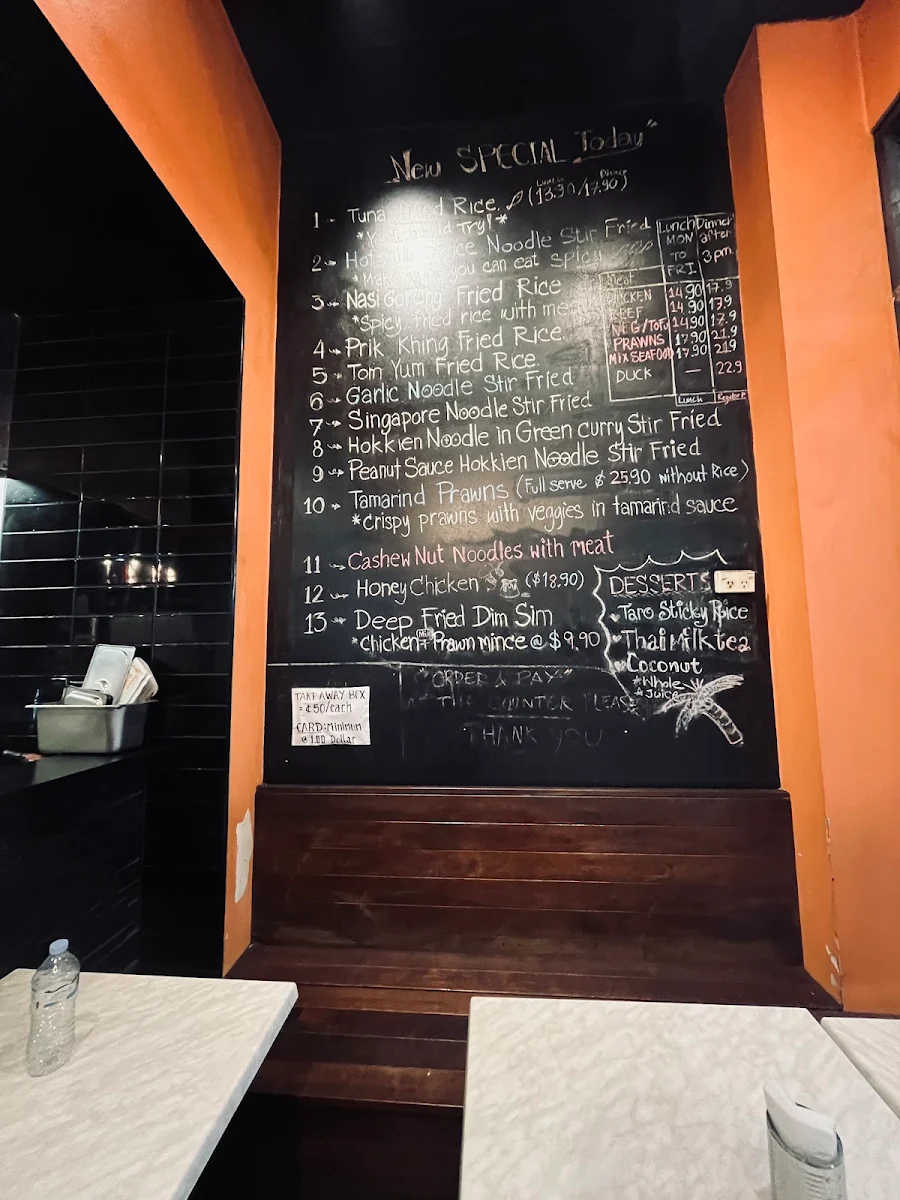 New SPECIAL Today"
Lunch Dinner
1 Tuna Fried Rice. (13.90/17.90)
Try! *
2 Noodle Stir Fried
you can eat spicy
3 Nasi Goreng Fried Rice
*Spicy fried rice with
4 Prik Khing Fried Rice
5 Tom Yum Fried Rice
6 Garlic Noodle Stir Fried
7 Singapore Noodle Stir Fried
8 Hokkien Noodle in Green curry Stir Fried
9 Peanut Sauce Hokkien Noodle Stir Fried
10 Tamarind Prawns (Full serve $25.90 without Rice)
*Crispy prawns with veggies in tamarind sauce
11 Cashew Nut Noodles with meat
12 Honey Chicken ($18.90)
13 Deep Fried Dim Sim
*Chicken + Prawn mince @ $9.90
Lunch Dinner
MON after
TO 3pm
FRI
Meat
CHICKEN 14.90 17.9
BEEF 14.90 17.9
VEG/Tofu 14.90 17.9
PRAWNS 17.90 21.9
MIX SEAFOOD 17.90 21.9
DUCK — 22.9
Lunch
DESSERTS
Taro Sticky Rice
Thai Milk tea
Coconut
*Whole
*Juice
"ORDER & PAY"
THE COUNTER PLEASE
THANK YOU
TAKEAWAY BOX
= ¢50/each
CARD: Minimum
Dollar